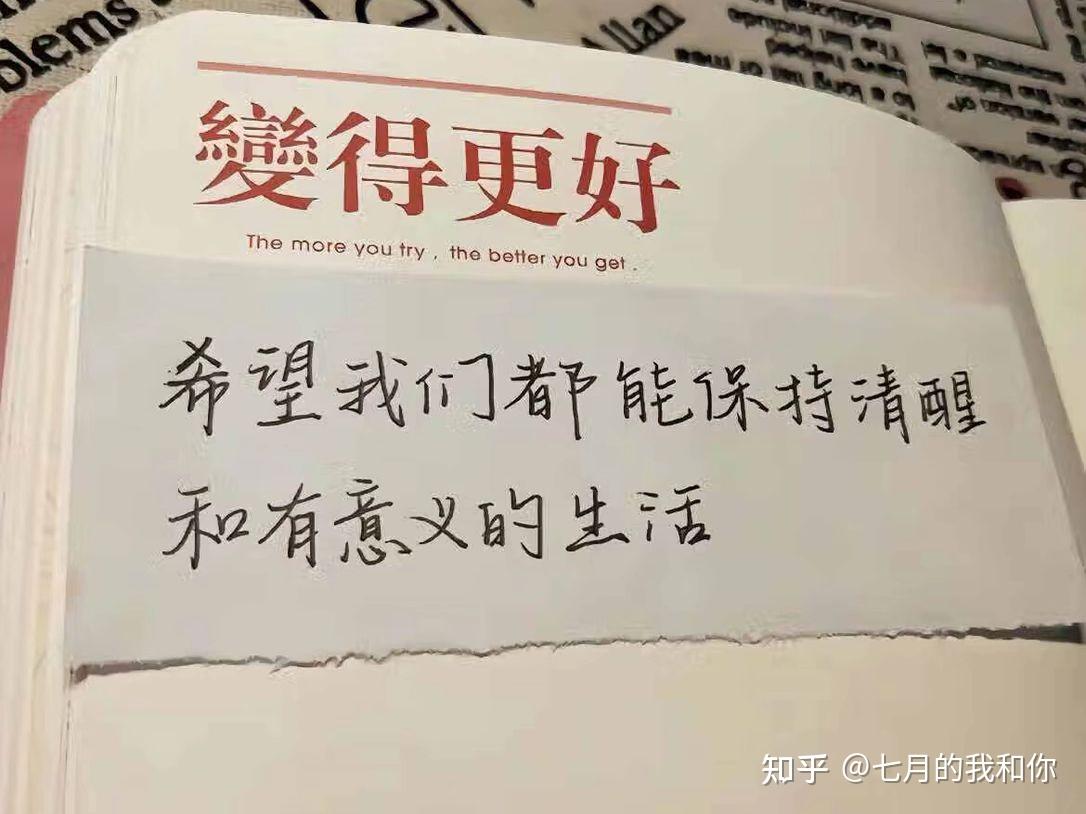 olems
Allan
變得更好
The more you try , the better you get .
希望我们都能保持清醒
和有意义的生活
知乎 @七月的我和你